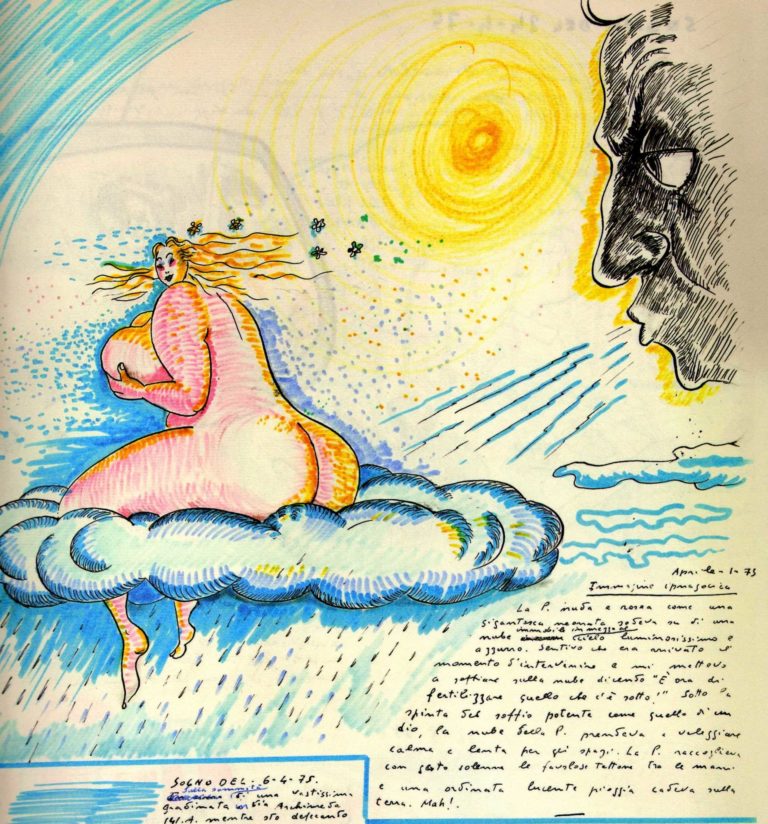 Aprile - 1 - 75
Immagine ipnagogica
La P. nuda e rosea come una
gigantesca neonata sedeva su di una
nube immobile in mezzo al cielo luminosissimo e
azzurro. Sentivo che era arrivato il
momento d'intervenire e mi mettevo
a soffiare sulla nube dicendo "È ora di
fertilizzare quello che c'è sotto!" Sotto la
spinta del soffio potente come quello di un
dio, la nube della P. prendeva a veleggiare
calma e lenta per gli spazi. La P. raccoglieva
con gesto solenne le favolose tettone tra le mani
e una ordinata lucente pioggia cadeva sulla
terra. Mah!.
SOGNO DEL: 6-4-75.
Sulla sommità
di una vastissima
gradinata Archimede
mentre sto defecando